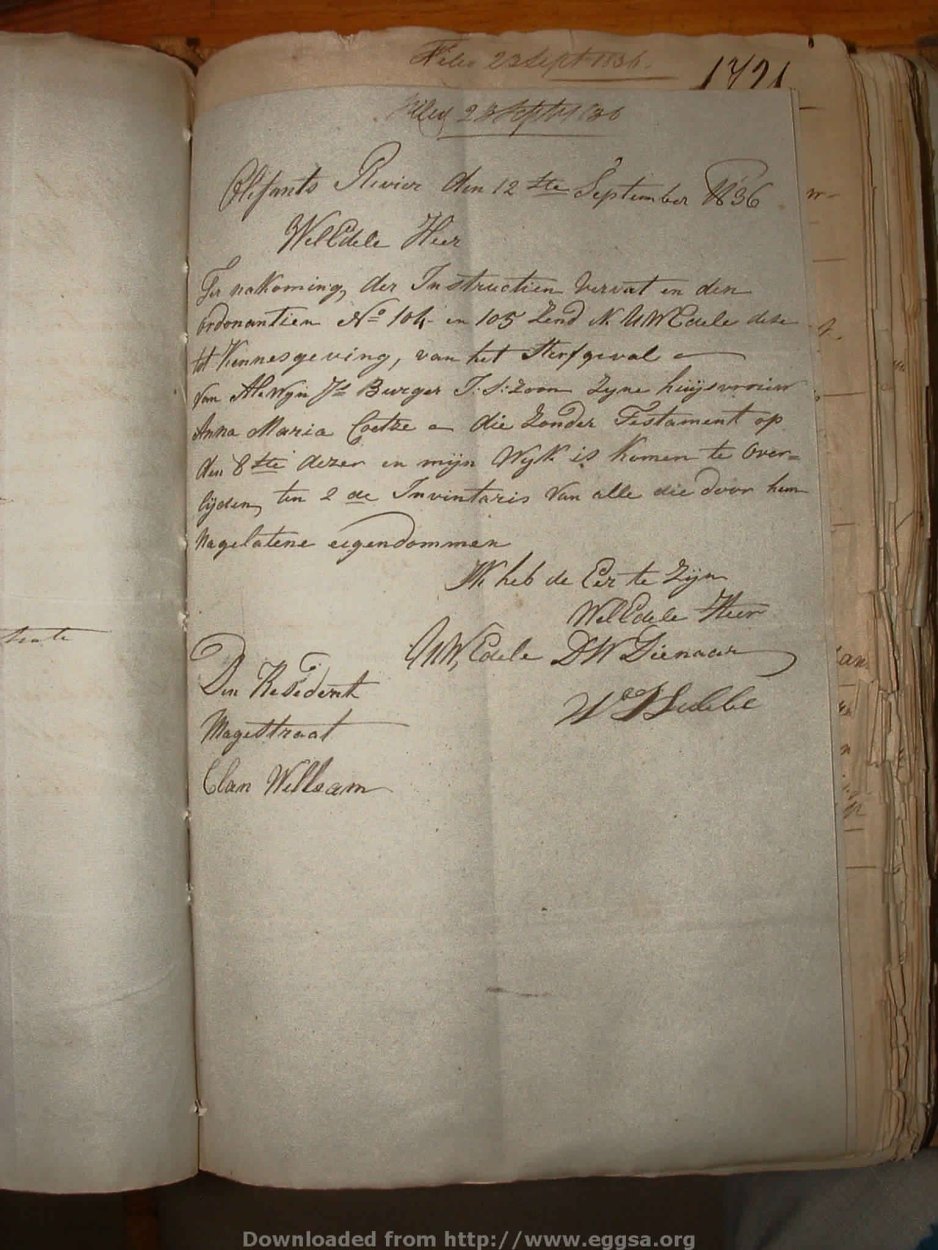 Filed 23 Sept 1836.
1721
Filed 23 Sept 1836
Olifants Rivier den 12 te September 1836
WelEdele Heer
Ter nakoming, der Instructien vervat in den
ordonantien No 104 en 105 Zend Ik UWEdele dese
tot Kennesgeving, van het Sterfgeval
van Alewyn Js Burger J:S:Zoon Zyne huijsvrouw
Anna Maria Coetze die Zonder Testament op
den 8 ste dezer in mijn Wyk is komen te Over=
lijden, ten 2 de Inventaris van alle die door hun
nagelatene eigendommen
Ik heb de Eer te Zijn
WelEdele Heer
UWEdele DW Dienaar
Den Resident
Magestraat
Clan William
teute
Downloaded from http://www.eggsa.org